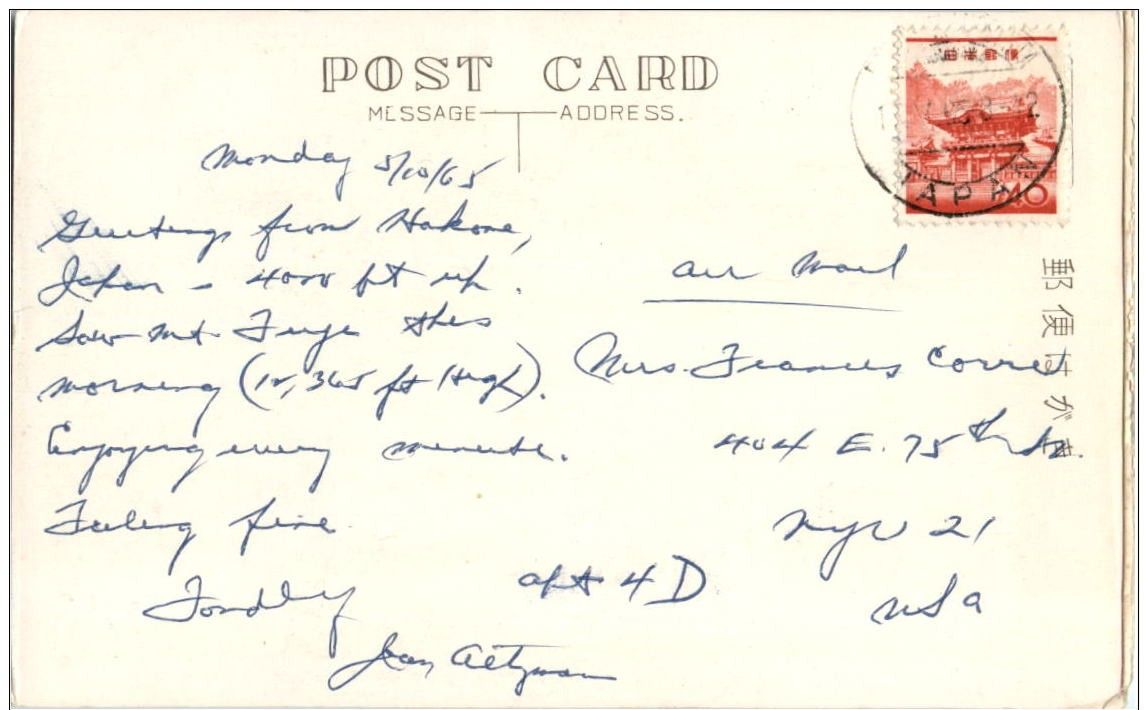 POST CARD
MESSAGE ADDRESS.
日本郵便
JAPAN
40
Monday 5/10/65
Greetings from Hakone,
Japan - 4000 ft up.
Saw Mt. Fuji this
morning (12,365 ft High).
Enjoying every minute.
Feeling fine
Fondly
Jean
Air Mail
Mrs. Frances Corret
404 E. 75th St.
Apt 4D
NYC 21
USA
郵便はがき